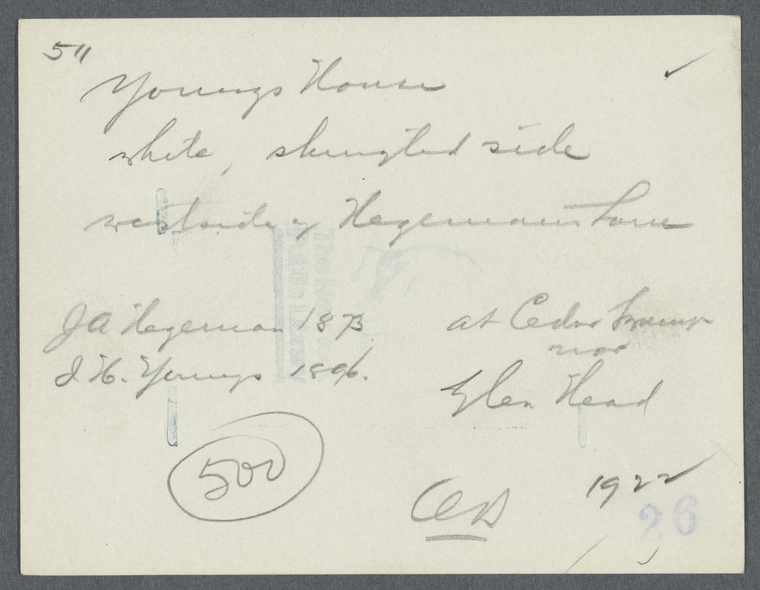 5"
Youngs House
white, shingled side
westside of Hegemans Lane
J A Hegeman 1873
J. H. Youngs 1896.
at Cedar Swamp
near
Glen Head
500
1922
26